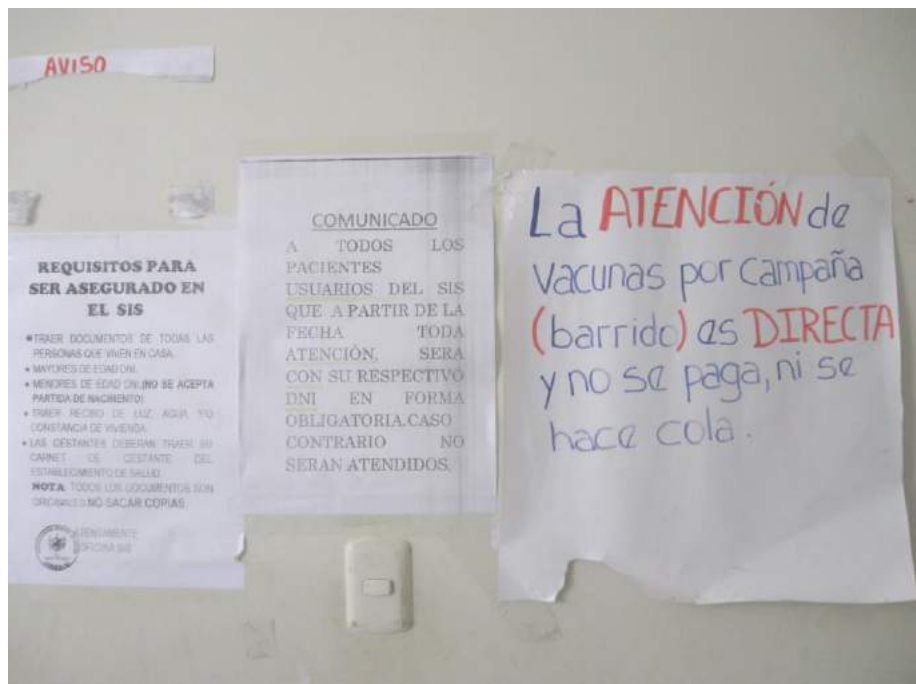 AVISO
REQUISITOS PARA
SER ASEGURADO EN
EL SIS
TRAER DOCUMENTOS DE TODAS LAS
PERSONAS QUE VIVEN EN CASA.
MAYORES DE EDAD DNI.
MENORES DE EDAD DNI,(NO SE ACEPTA
PARTIDA DE NACIMIENTO)
TRAER RECIBO DE LUZ, AGUA Y/O
CONSTANCIA DE VIVIENDA
LAS GESTANTES DEBERAN TRAER SU
CARNET DE GESTANTE DEL
ESTABLECIMIENTO DE SALUD.
NOTA: TODOS LOS DOCUMENTOS SON
ORIGINALES NO SACAR COPIAS.
ATENTAMENTE
OFICINA SIS
COMUNICADO
A TODOS LOS
PACIENTES
USUARIOS DEL SIS
QUE A PARTIR DE LA
FECHA TODA
ATENCIÓN, SERA
CON SU RESPECTIVO
DNI EN FORMA
OBLIGATORIA.CASO
CONTRARIO NO
SERAN ATENDIDOS.
La ATENCIÓN de
vacunas por campaña
(barrido) es DIRECTA
y no se paga, ni se
hace cola.